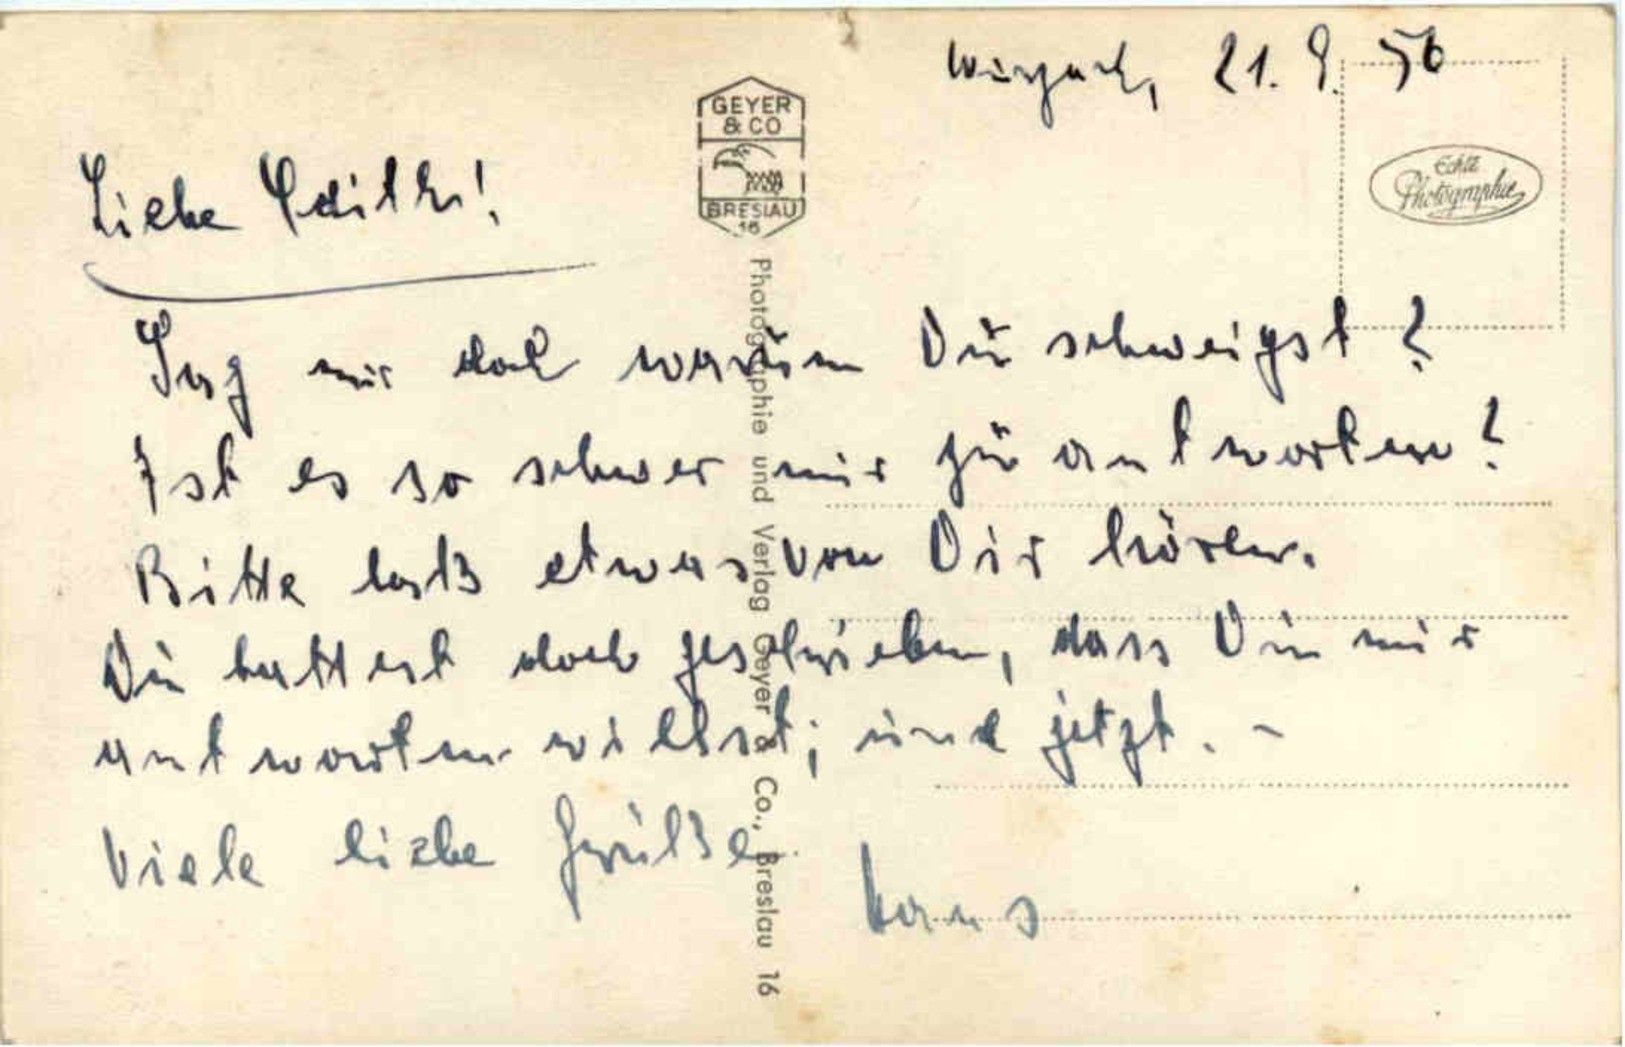 21. 9. 56
GEYER
& CO
BRESLAU
16
Echte
Photographie
Liebe Edith!
Sag mir doch warum Du schweigst?
Ist es so schwer mir zu antworten?
Bitte laß etwas von Dir hören.
Du hattest doch geschrieben, dass Du mir
antworten willst; und jetzt. -
Viele liebe Grüße
Hans
Photographie und Verlag Geyer & Co., Breslau 16